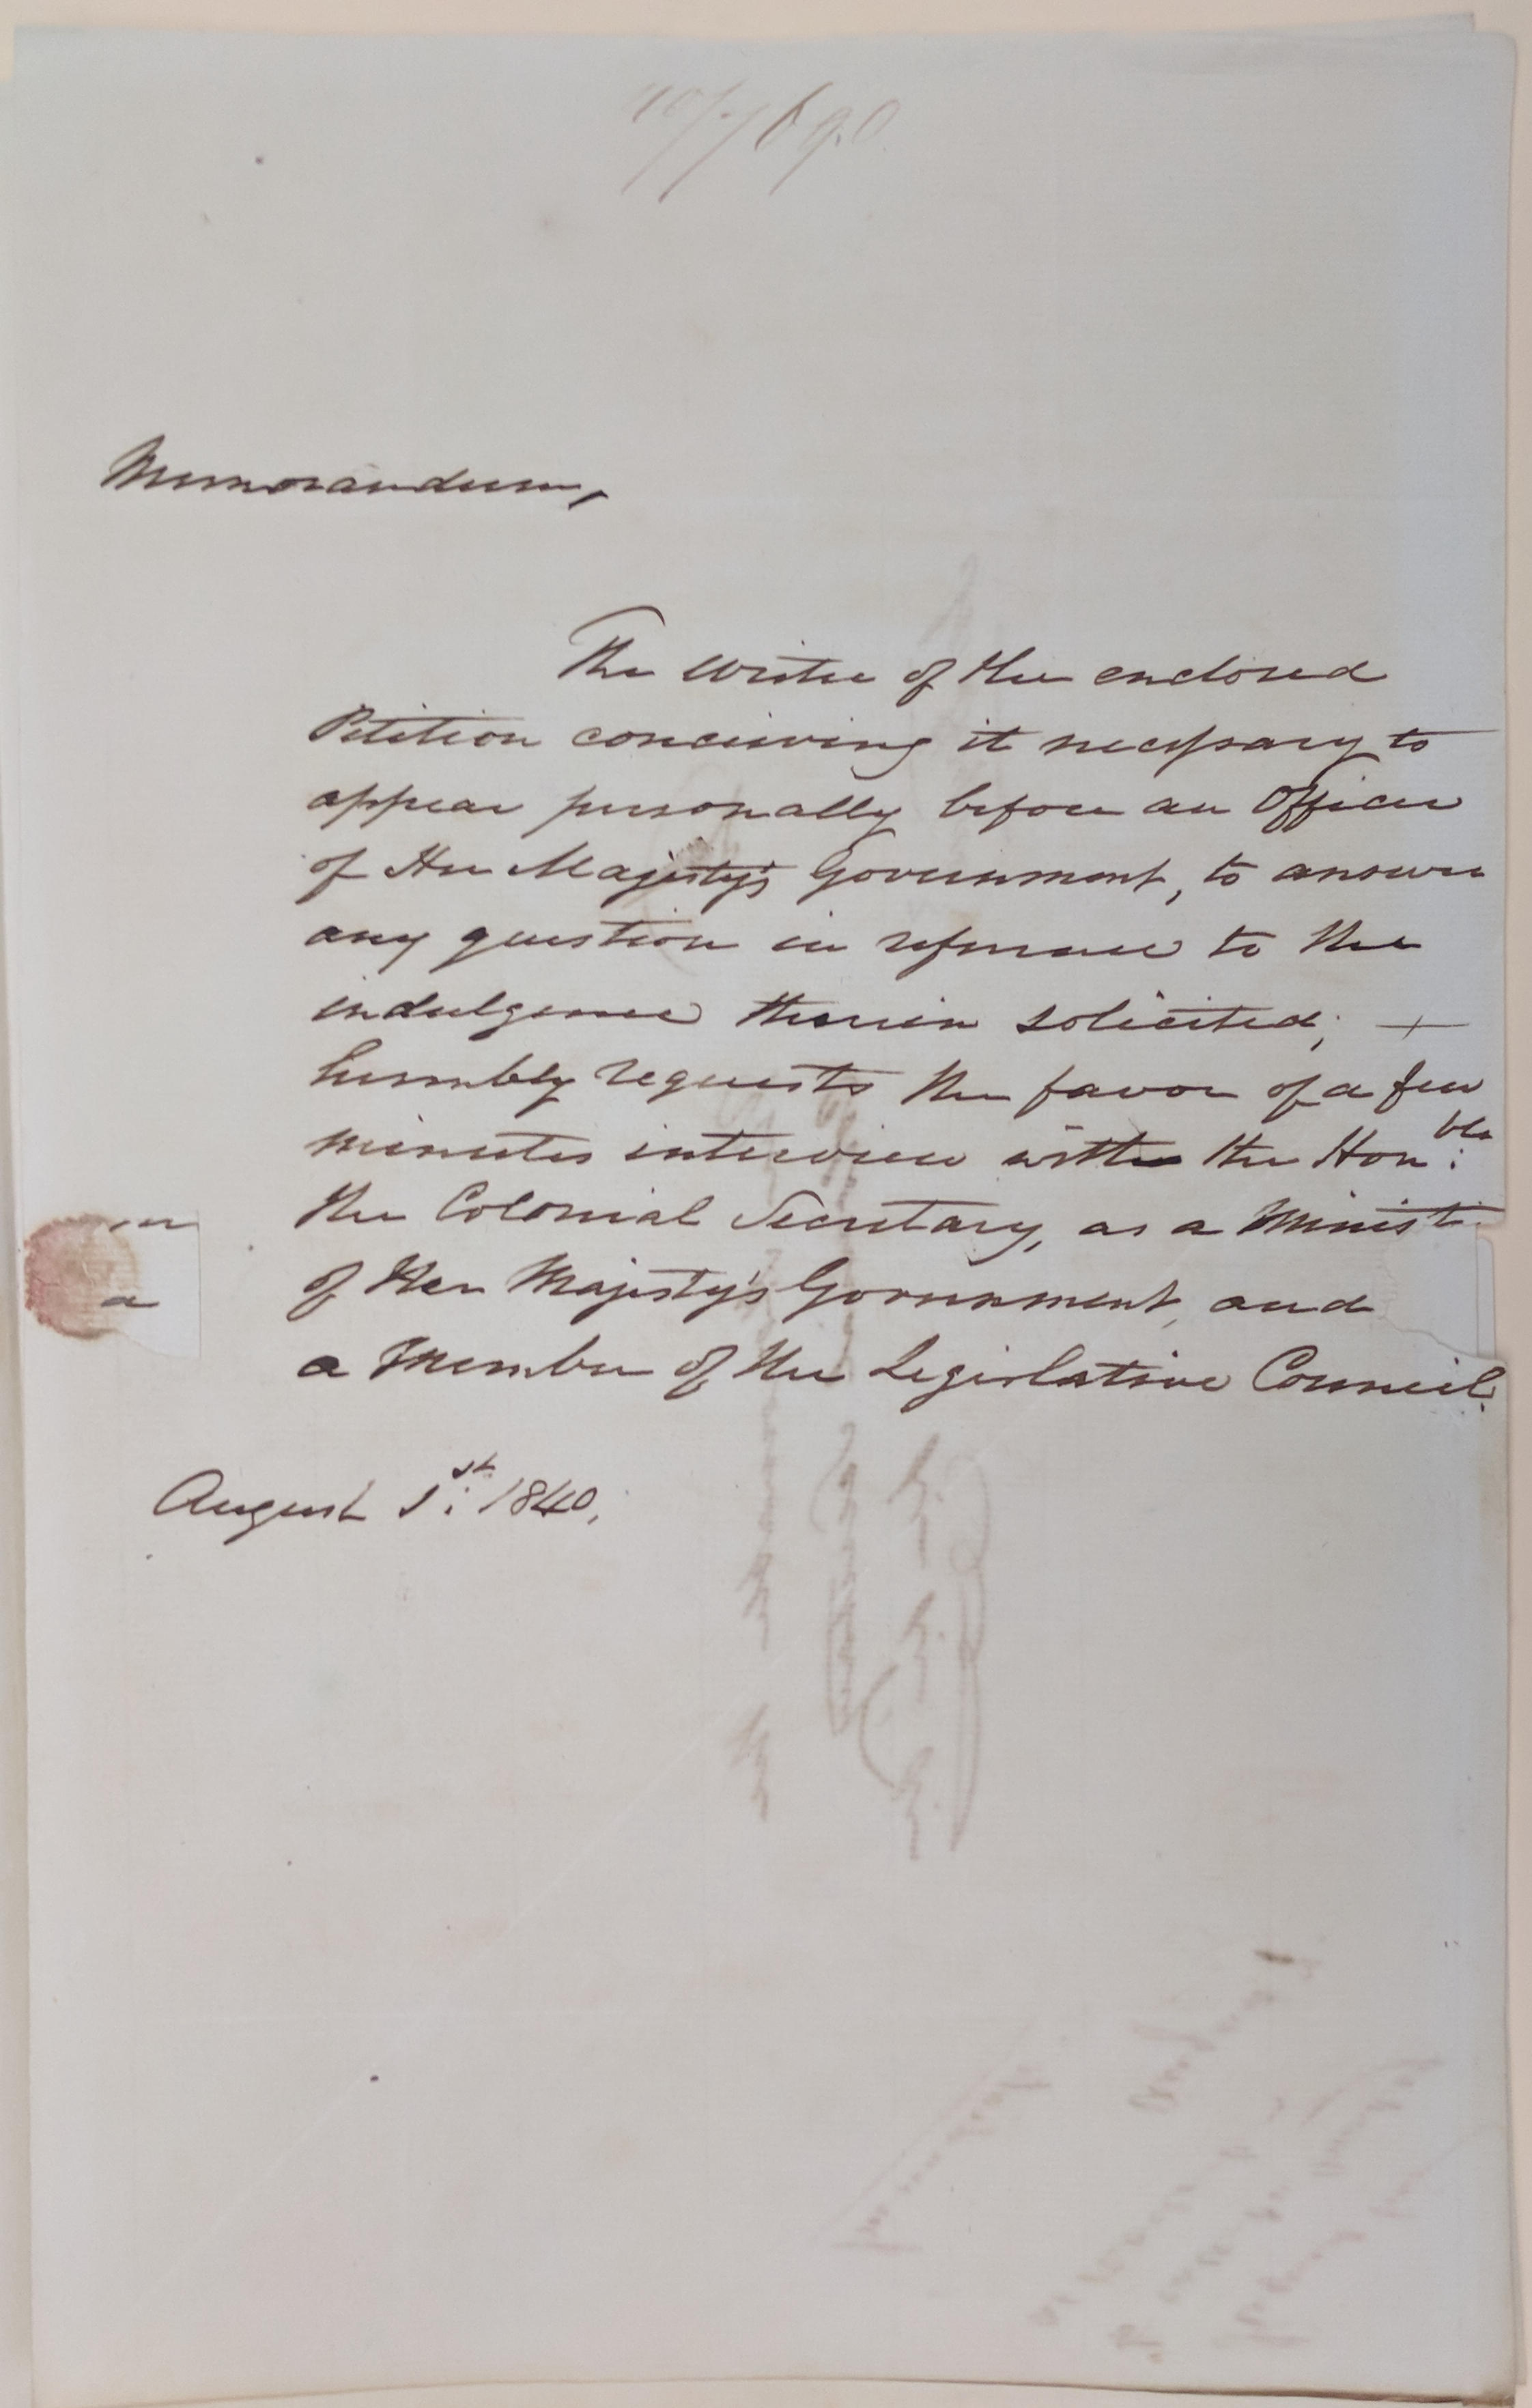 Memorandum,
The writer of the enclosed
Petition conceiving it necessary to
appear personally before an Officer
of Her Majesty's Government, to answer
any question in reference to the
indulgence therein solicited; +
humbly requests the favor of a few
minutes interview with the Hon:ble
the Colonial Secretary, as a Minist
of Her Majesty's Government, and
a Member of the Legislative Council.
August 1:st 1840,